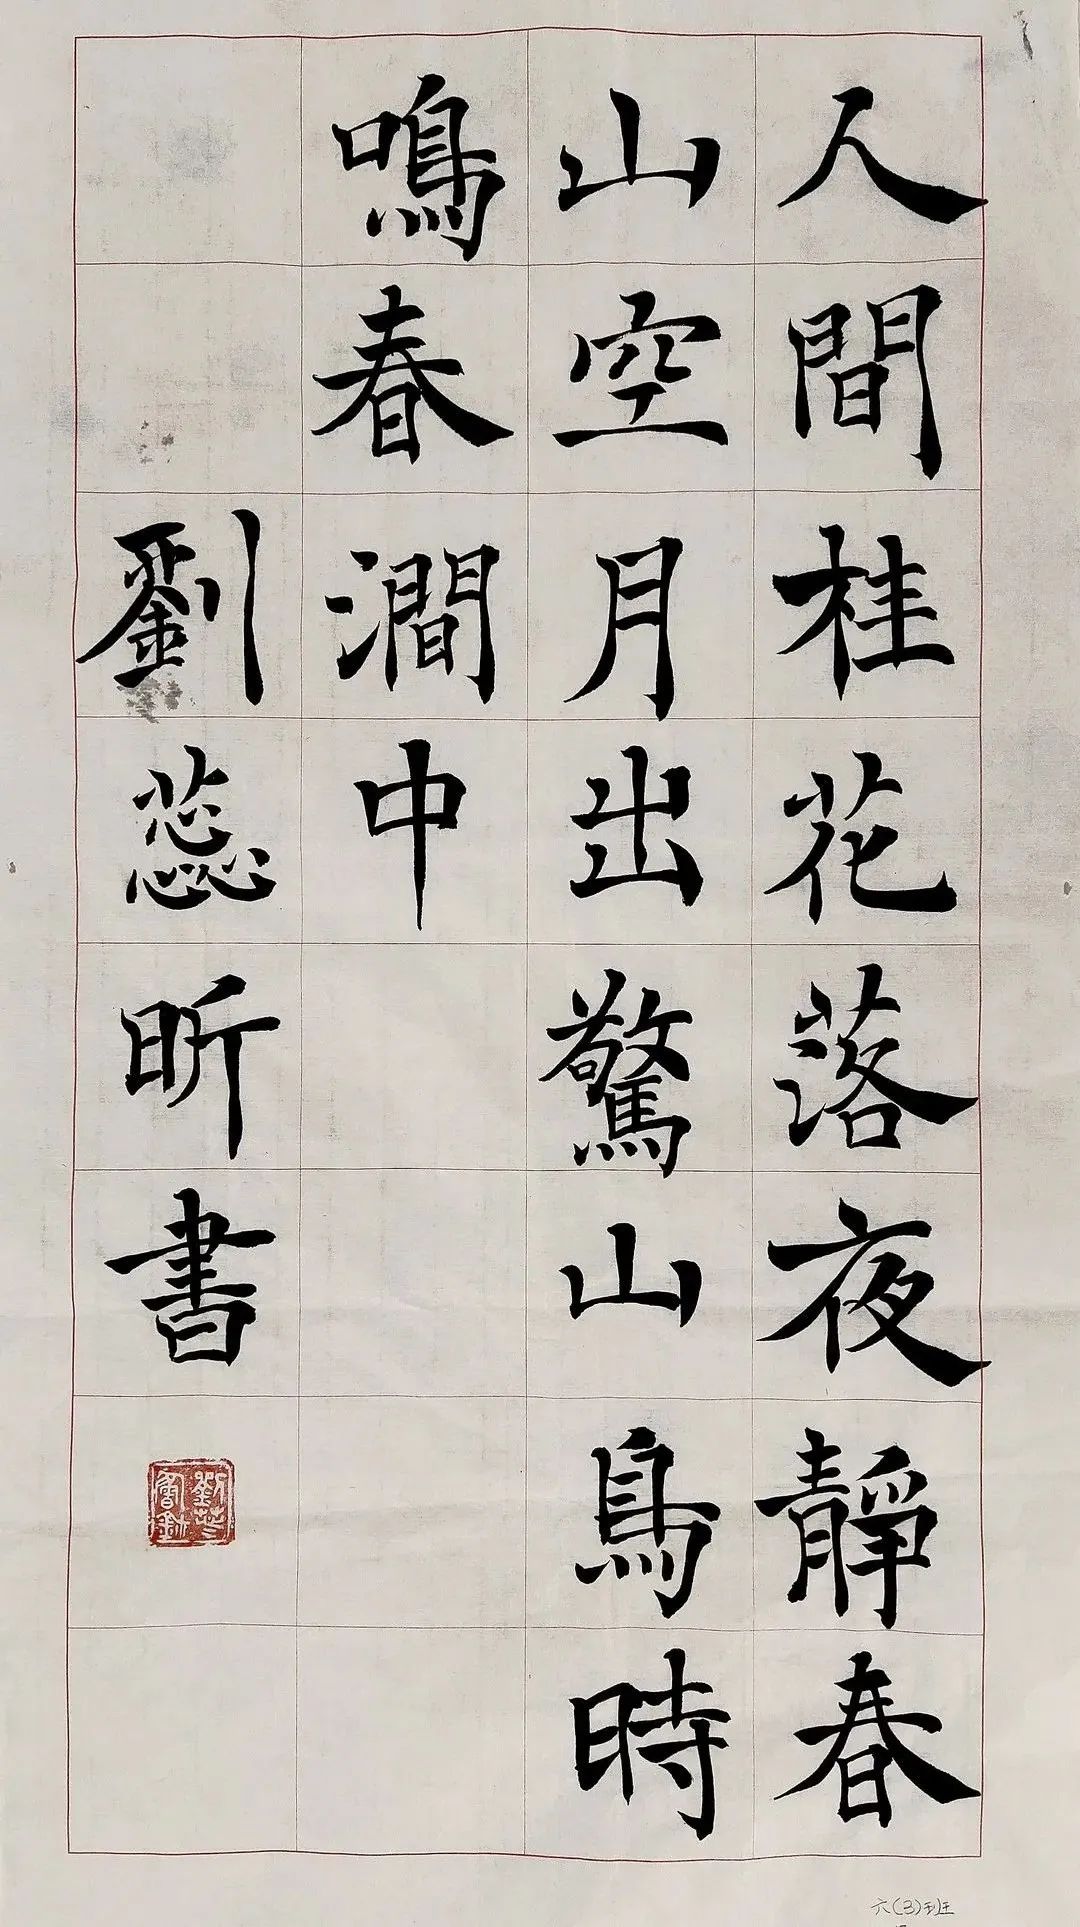 人間桂花落夜靜春
山空月出驚山鳥時
鳴春澗中
劉蕊昕書
六(3)班